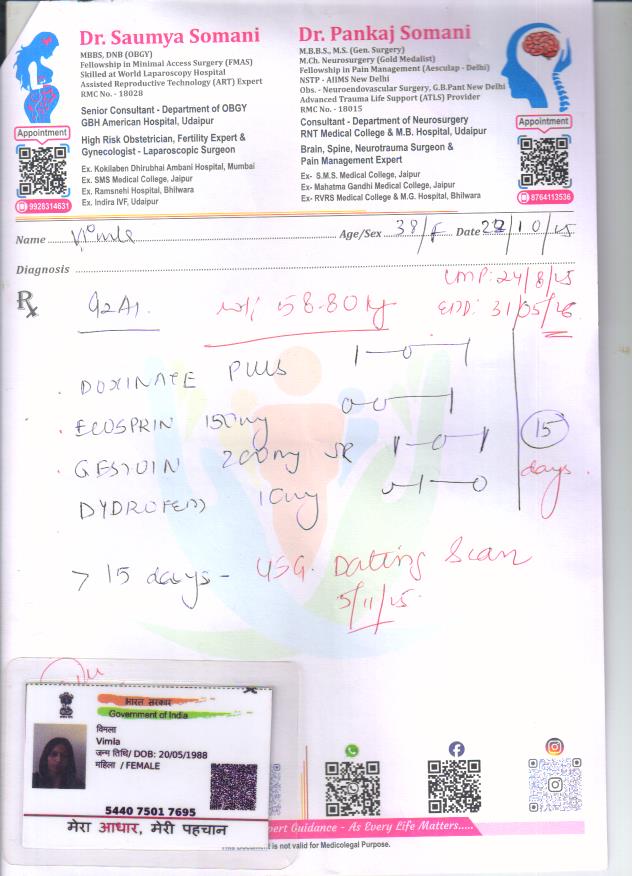 Dr. Saumya Somani
MBBS, DNB (OBGY)
Fellowship in Minimal Access Surgery (FMAS)
Skilled at World Laparoscopy Hospital
Assisted Reproductive Technology (ART) Expert
RMC No. - 18028
Senior Consultant - Department of OBGY
GBH American Hospital, Udaipur
High Risk Obstetrician, Fertility Expert &
Gynecologist - Laparoscopic Surgeon
Ex. Kokilaben Dhirubhai Ambani Hospital, Mumbai
Ex. SMS Medical College, Jaipur
Ex. Ramsnehi Hospital, Bhilwara
Ex. Indira IVF, Udaipur
Appointment
9928314631
Dr. Pankaj Somani
M.B.B.S., M.S. (Gen. Surgery)
M.Ch. Neurosurgery (Gold Medalist)
Fellowship in Pain Management (Aesculap - Delhi)
NSTP - AIIMS New Delhi
Obs. - Neuroendovascular Surgery, G.B.Pant New Delhi
Advanced Trauma Life Support (ATLS) Provider
RMC No. - 18015
Consultant - Department of Neurosurgery
RNT Medical College & M.B. Hospital, Udaipur
Brain, Spine, Neurotrauma Surgeon &
Pain Management Expert
Ex- S.M.S. Medical College, Jaipur
Ex- Mahatma Gandhi Medical College, Jaipur
Ex- RVRS Medical College & M.G. Hospital, Bhilwara
Appointment
8764113536
Name Vimla Age/Sex 38/F Date 22/10/25
Diagnosis
LMP: 24/8/25
Rx G2A1 wt/ 58.80 kg EDD: 31/05/26
DOXINATE PLUS 1-0-1
ECOSPRIN 150mg 0-0-1
GESTOIN 200mg SR 1-0-1
DYDROFEM 10mg 0-1-0
15 days
> 15 days - USG. Datting Scan
5/11/25
भारत सरकार
Government of India
विमला
Vimla
जन्म तिथि/ DOB: 20/05/1988
महिला / FEMALE
5440 7501 7695
मेरा आधार, मेरी पहचान
pert Guidance - As Every Life Matters.....
is not valid for Medicolegal Purpose.